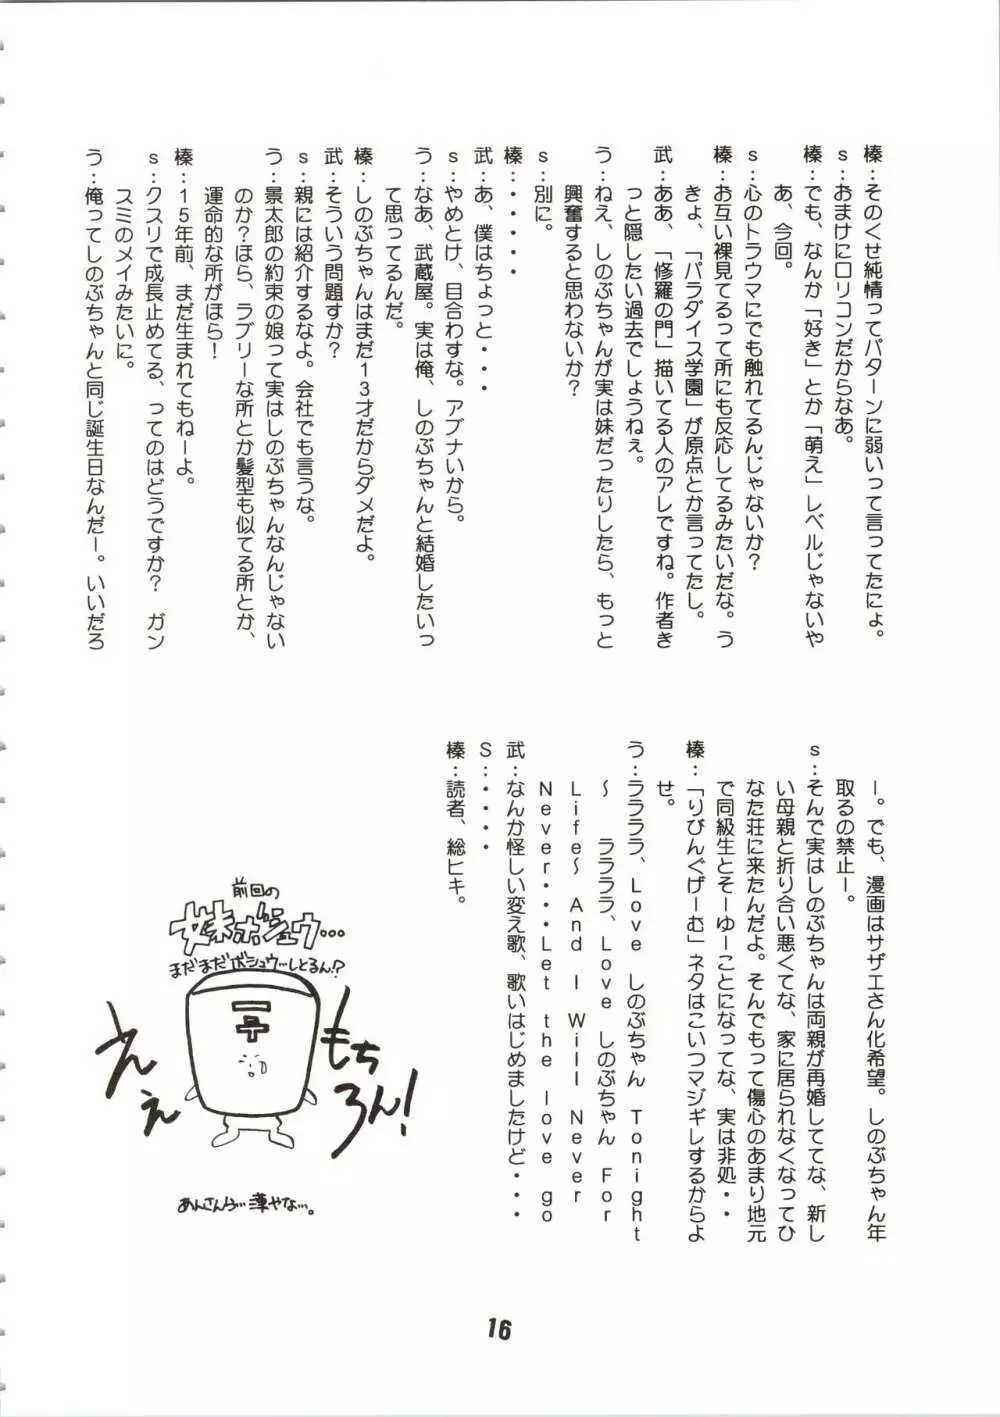 榛：そのくせ純情ってパターンに弱いって言ってたにょ。
s：おまけにロリコンだからなあ。
榛：でも、なんか「好き」とか「萌え」レベルじゃないや
あ、今回。
s：心のトラウマにでも触れてるんじゃないか？
榛：お互い裸見てるって所にも反応してるみたいだな。う
きょ、「パラダイス学園」が原点とか言ってたし。
武：ああ、「修羅の門」描いてる人のアレですね。作者き
っと隠したい過去でしょうねぇ。
う：ねえ、しのぶちゃんが実は妹だったりしたら、もっと
興奮すると思わないか？
s：別に。
榛：・・・・・
武：あ、僕はちょっと・・・
s：やめとけ、目合わすな。アブナいから。
う：なあ、武蔵屋。実は俺、しのぶちゃんと結婚したいっ
て思ってるんだ。
榛：しのぶちゃんはまだ13才だからダメだよ。
武：そういう問題すか？
s：親には紹介するなよ。会社でも言うな。
う：景太郎の約束の娘って実はしのぶちゃんなんじゃない
のか？ほら、ラブリーな所とか髪型も似てる所とか、
運命的な所がほら！
榛：15年前、まだ生まれてもねーよ。
s：クスリで成長止めてる、ってのはどうですか？　ガン
スミのメイみたいに。
う：俺ってしのぶちゃんと同じ誕生日なんだー。いいだろ
ー。でも、漫画はサザエさん化希望。しのぶちゃん年
取るの禁止ー。
s：そんで実はしのぶちゃんは両親が再婚しててな、新し
い母親と折り合い悪くてな、家に居られなくなってひ
なた荘に来たんだよ。そんでもって傷心のあまり地元
で同級生とそーゆーことになってな、実は非処・・
榛：「りびんぐげーむ」ネタはこいつマジギレするからよ
せ。
う：ラララララ、Love しのぶちゃん Tonight
～　ラララララ、Love しのぶちゃん For
Life～ And I Will Never
Never・・・Let the love go
武：なんか怪しい変え歌、歌いはじめましたけど・・・
S：・・・・
榛：読者、総ヒキ。
前回の
妹ボシュウ…
まだまだボシュウ…しとるん!?
もちろん!
ええ
あんさんら…薄やな…。
16